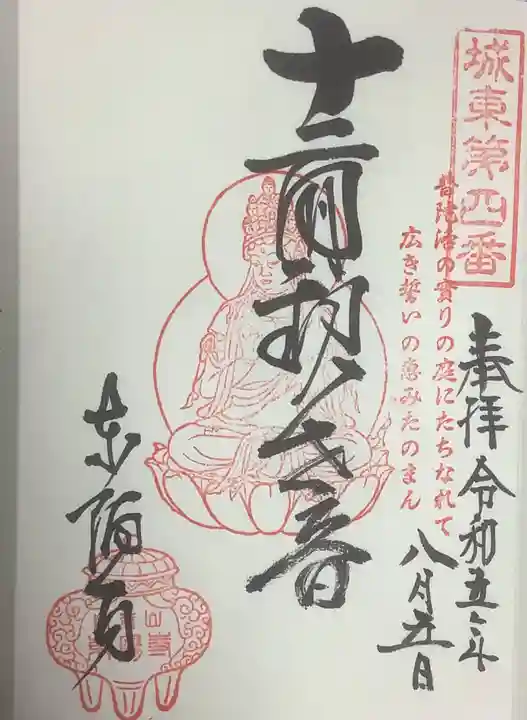 城東第四番
奉拝 令和五年
八月五日
普陀洛の実りの庭にたちなれて
広き誓いの恵みたのまん
十一面観世音